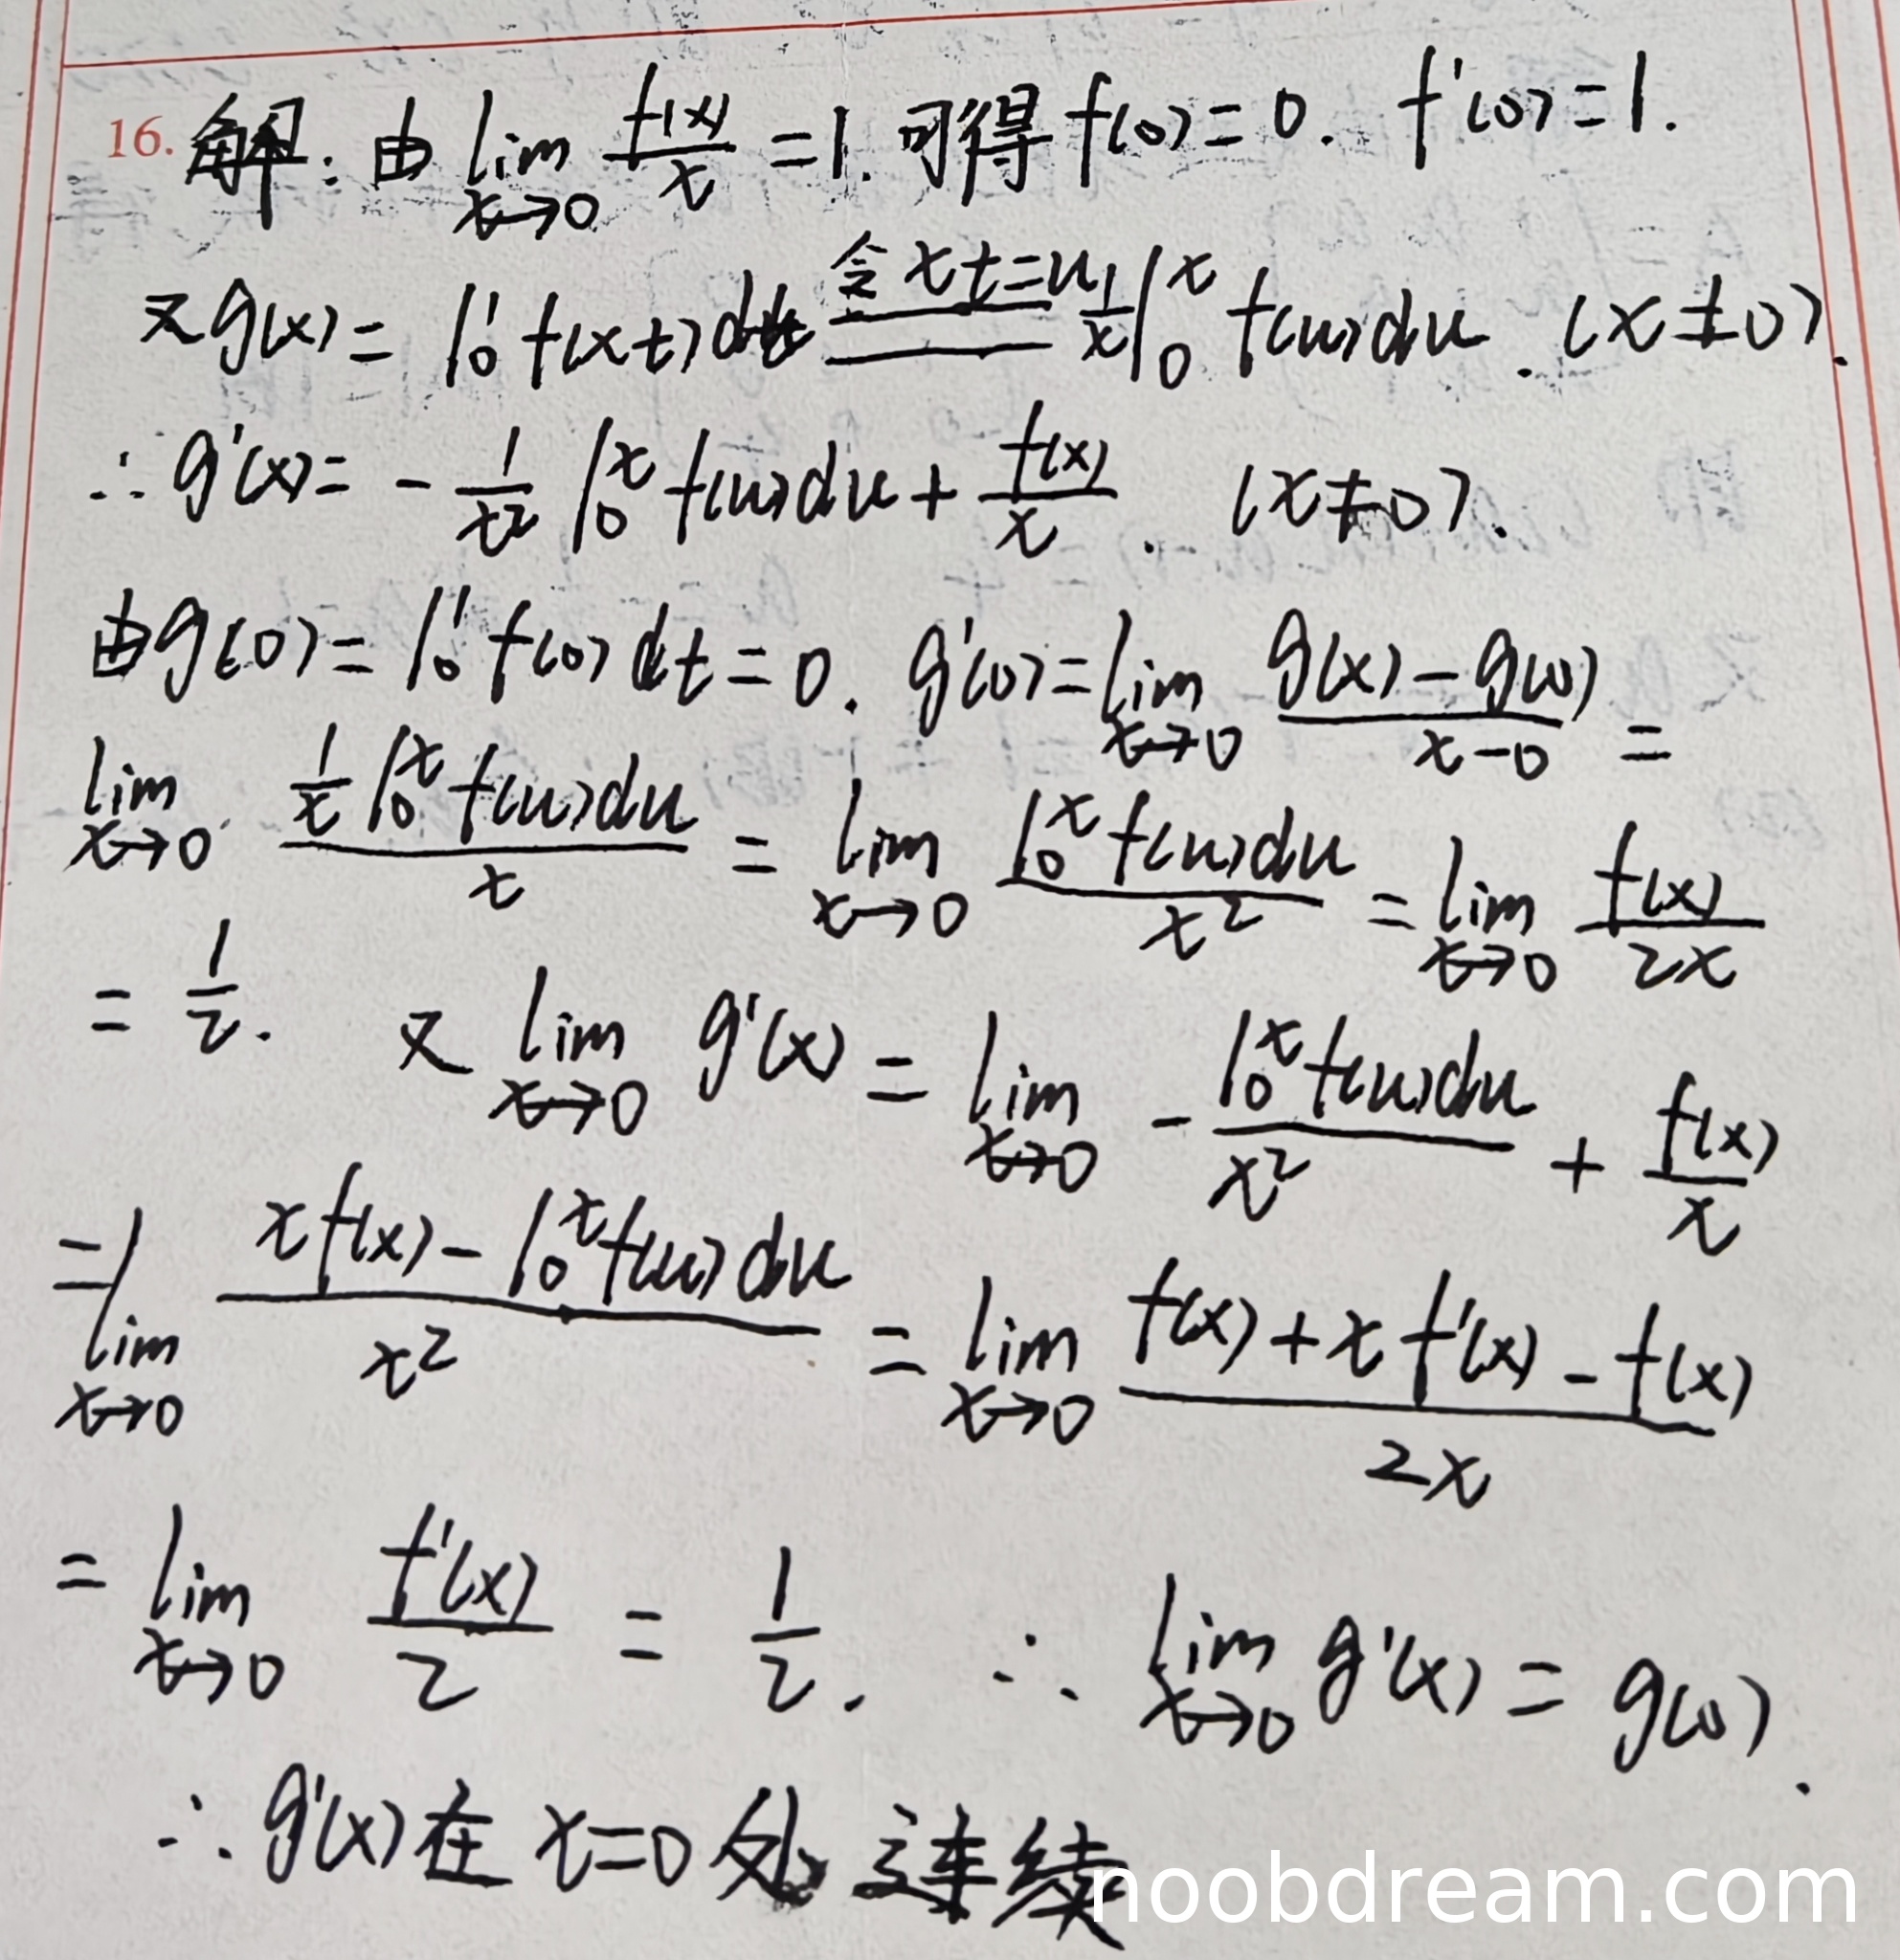 16. 解:由 lim_{x→0} f(x)/x = 1. 可得 f(0) = 0. f'(0) = 1.
又 g(x) = ∫_0^1 f(xt)dt ==令 xt=u== 1/x ∫_0^x f(u)du. (x≠0).
∴ g'(x) = - 1/x² ∫_0^x f(u)du + f(x)/x. (x≠0).
由 g(0) = ∫_0^1 f(0)dt = 0. g'(0) = lim_{x→0} (g(x) - g(0))/(x-0) =
lim_{x→0} (1/x ∫_0^x f(u)du)/x = lim_{x→0} (∫_0^x f(u)du)/x² = lim_{x→0} f(x)/2x
= 1/2. 又 lim_{x→0} g'(x) = lim_{x→0} - (∫_0^x f(u)du)/x² + f(x)/x
= lim_{x→0} (xf(x) - ∫_0^x f(u)du)/x² = lim_{x→0} (f(x) + xf'(x) - f(x))/2x
= lim_{x→0} f'(x)/2 = 1/2. ∴ lim_{x→0} g'(x) = g(0).
∴ g'(x) 在 x=0 处 连续
noobdream.com